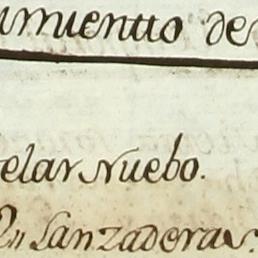 umientto de
elar Nuebo.
Lanzaderas.